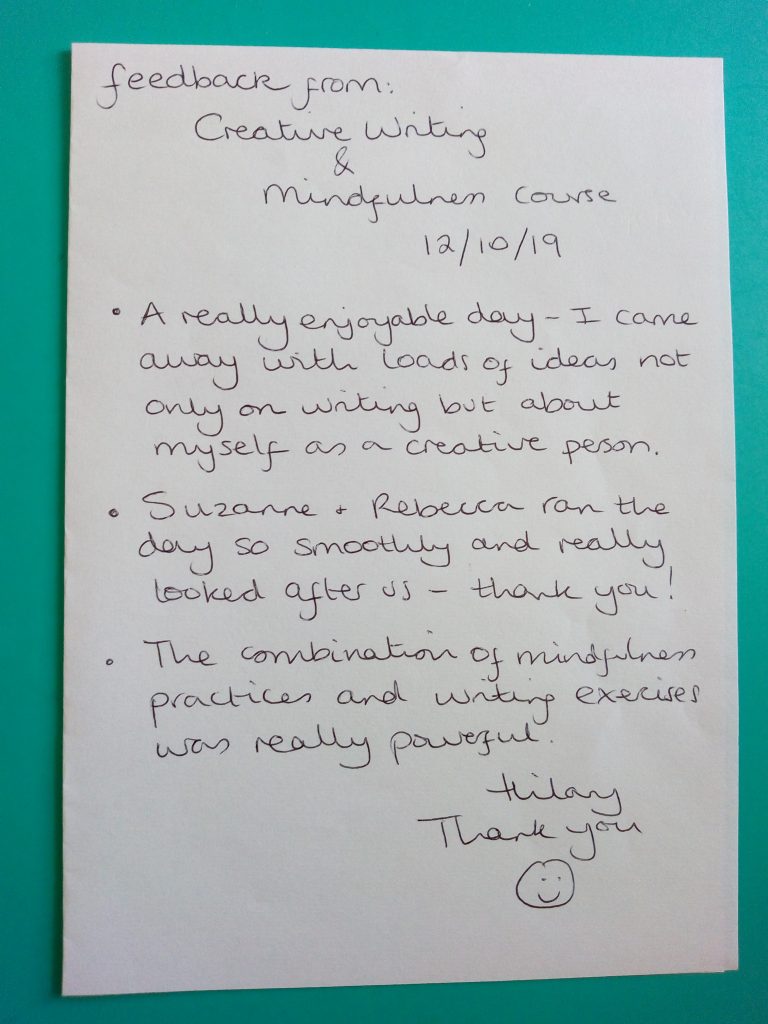 feedback from:
Creative Writing
&
Mindfulness Course
12/10/19
• A really enjoyable day – I came
away with loads of ideas not
only on writing but about
myself as a creative person.
• Suzanne + Rebecca ran the
day so smoothly and really
looked after us – thank you!
• The combination of mindfulness
practices and writing exercises
was really powerful.
Hilary
Thank you